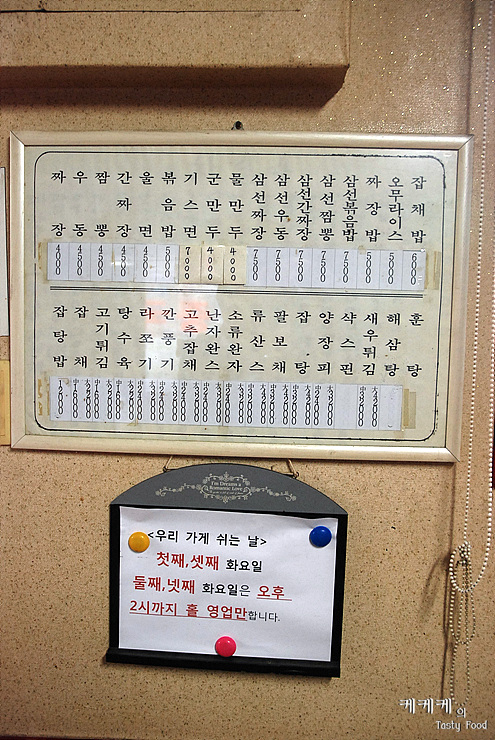 짜장 4000
우동 4500
짬뽕 4500
간짜장 4500
울면 4500
볶음밥 5000
기스면 7000
군만두 4000
물만두 4000
삼선짜장 7500
삼선우동 7500
삼선간짜장 7500
삼선짬뽕 7500
삼선볶음밥 7500
짜장밥 5000
오무라이스 5000
잡채밥 6000
잡탕밥
잡채
고기튀김
탕수육
라쪼기
깐풍기
고추잡채
난자완스
소류완자
류산스
팔보채
잡탕
양장피
샥스핀
새우튀김
해삼탕
훈탕
I'm Dreams a
Romantic Love
<우리 가게 쉬는 날>
첫째,셋째 화요일
둘째,넷째 화요일은 오후
2시까지 홀 영업만합니다.
케케케의
Tasty Food